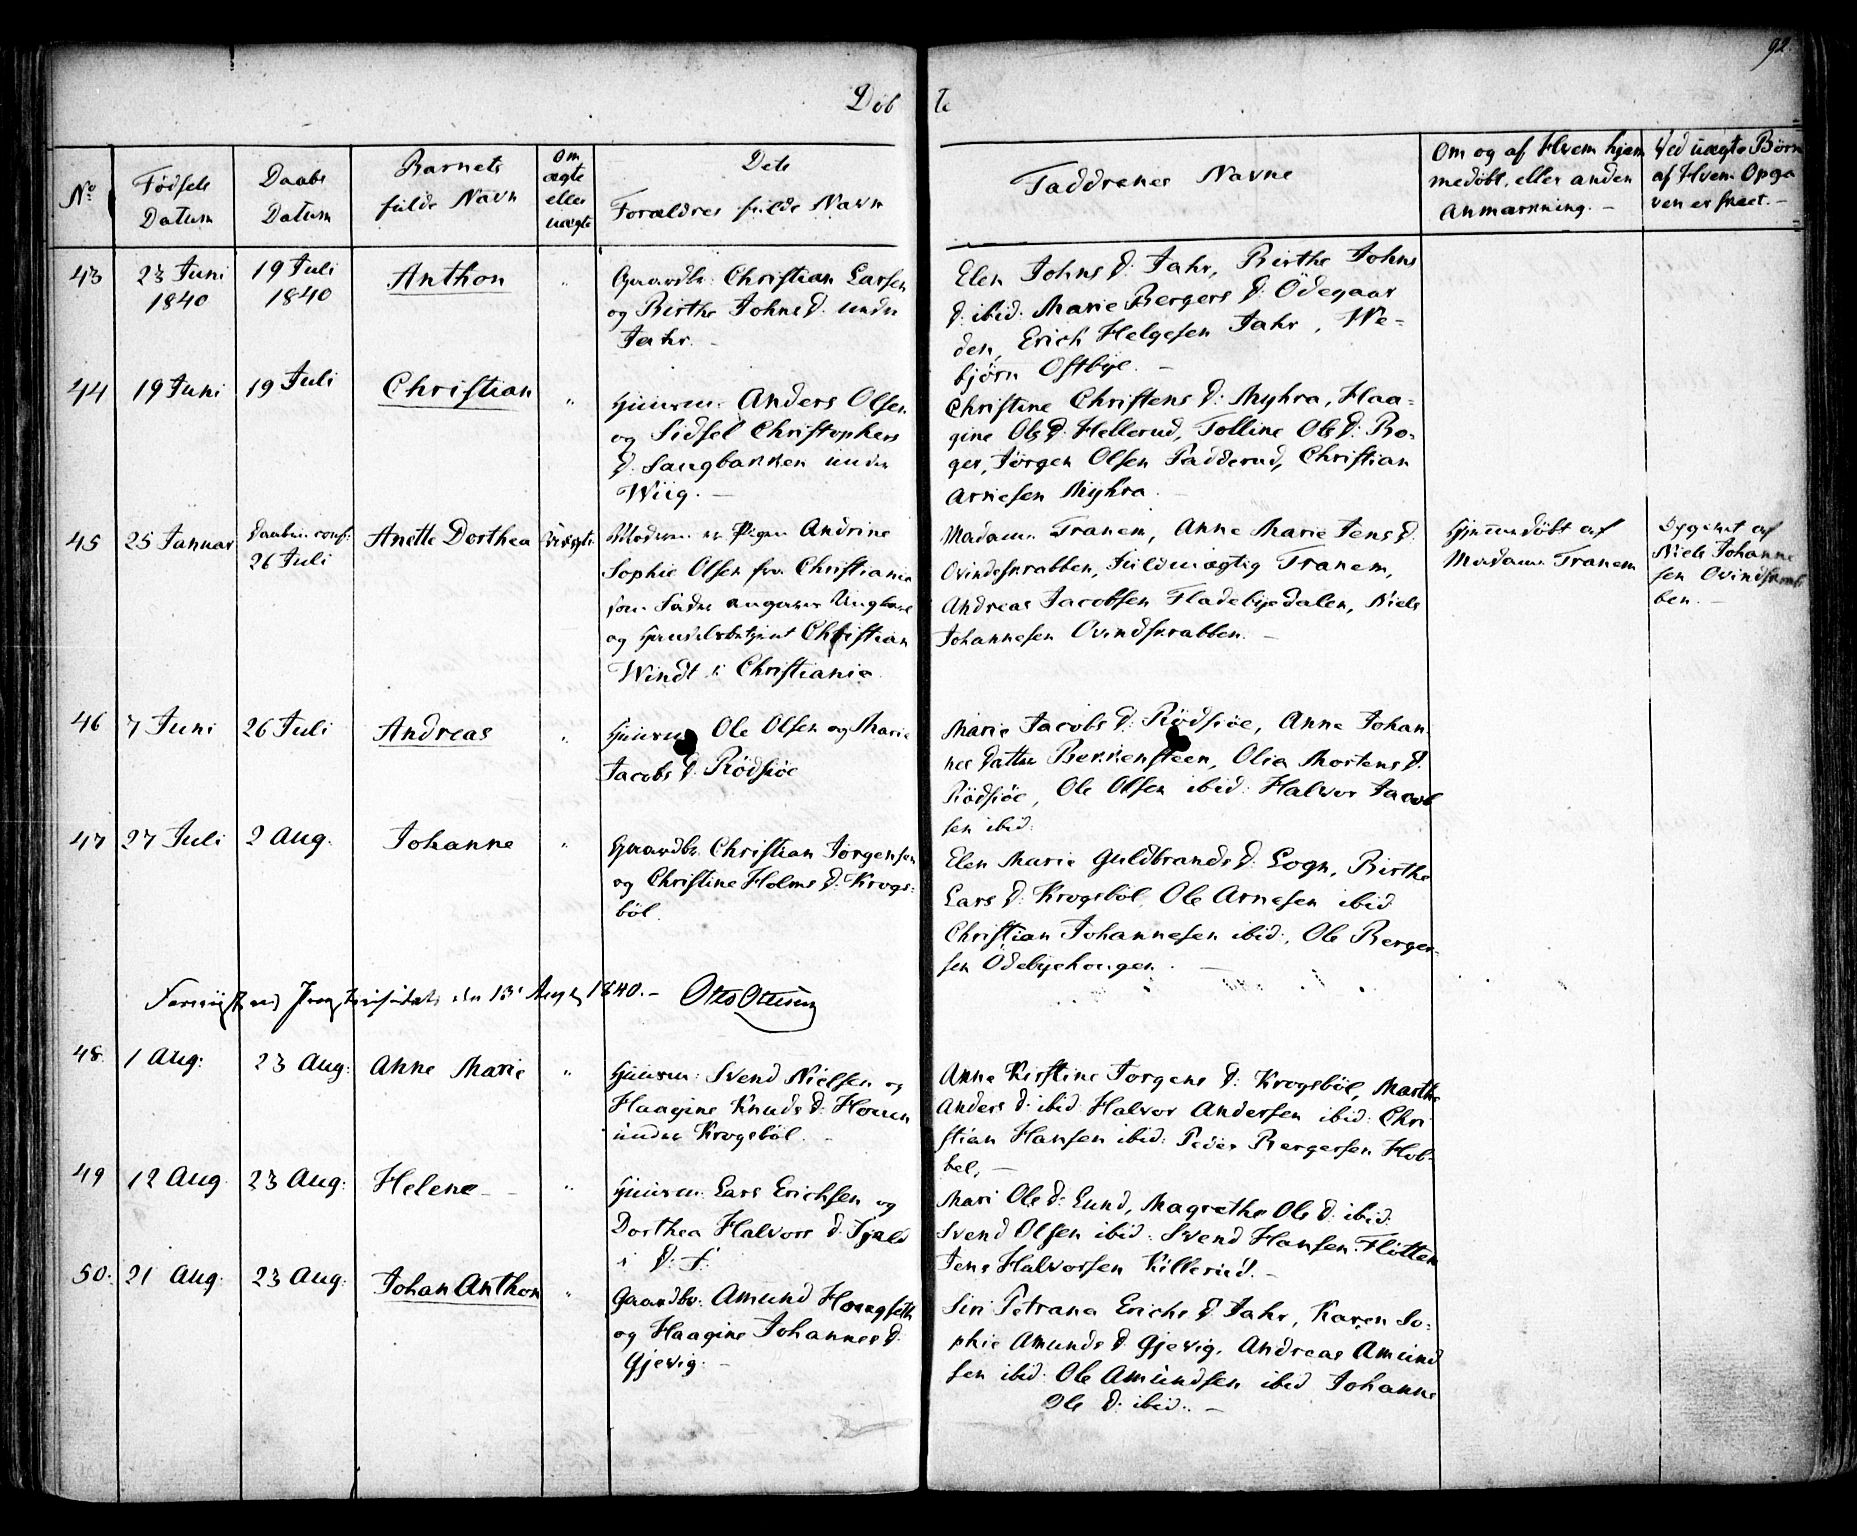 92.
Döbte
No
Födsels Datum
Daabs Datum
Barnets fulde Navn
Om ægte eller uægte
Dets Forældres fulde Navn
Faddrenes Navne
Om og af Hvem hjemmedöbt, eller anden Anmærkning. -
Ved uægte Börn af Hvem Opgaven er skeet. -
43
23 Juni
1840
19 Juli
1840
Anthon
"
Gaardbr: Christian Larsen
og Birthe Johns D. under
Jahr. -
Elen Johns D: Jahr, Birthe Johns
D: ibid: Marie Bergers D: Ödegaar
den, Erich Helgesen Jahr, We-
björn Ostbye. -
44
19 Juni
19 Juli
Christian
"
Huusm: Anders Olsen
og Sidsel Christophers
D. Saugbakken under
Wiig. -
Christine Christens D: Myhra, Haa-
gine Ols D: Hellerud, Tolline Ols D: Bo-
ger, Jörgen Olsen Padderud, Christian
Arnesen Myhra. -
45
25 Januar
Daaben conf:
26 Juli
Anette Dorthea
Uægte
Moderen er Pigen Andrine
Sophie Olsen fra Christiania
som Fader angives Ungkarl
og Handelsbetjent Christian
Windt i Christiania
Madam Tranem, Anne Marie Jens D.
Ovindskrabben, Fuldmægtig Tranem,
Andreas Jacobsen Fladebyedalen, Niels
Johannesen Ovindskrabben. -
Hjemmedöbt af
Madam Tranem
Opgivet af
Niels Johanne
sen Ovindskrab
ben. -
46
7 Juni
26 Juli
Andreas
"
Huusm: Ole Olsen og Marie
Jacobs D. Rödsiöe
Marie Jacobs D: Rödsiöe, Anne Johan
nes Datter Bekkensteen, Olia Mortens D.
Rödsiöe, Ole Olsen ibid: Halvor Jacob
sen ibid:
47
27 Juli
2 Aug.
Johanne
"
Gaardbr. Christian Jörgensen
og Christine Holms D: Krogs-
böl.
Elen Marie Guldbrands D: Sogn, Birthe
Lars D: Krogsböl, Ole Arnesen ibid
Christian Johannesen ibid:, Ole Berger-
sen Ödebyehougen. -
ved den 13 Aug 1840. - Otto Ottesen
48
1 Aug:
23 Aug:
Anne Marie
"
Huusm: Svend Nielsen og
Haagine Knuds D: Houen
under Krogsböl. -
Anne Kirstine Jorgens D: Krogsböl, Marthe
Anders D: ibid: Halvor Andersen ibid: Chri
stian Hansen ibid: Peder Bergersen Hob-
bel, -
49
12 Aug
23 Aug:
Helene -
"
Huusm: Lars Erichsen og
Dorthea Halvors D:
i D: F:
Mari Ols D: Lund, Magrethe Ols D: ibid:
Svend Olsen ibid: Svend Hansen Flötten
Jens Halvorsen Killerud. -
50.
21 Aug:
23 Aug:
Johan Anthon
"
Gaardbr: Amund Haugseth
og Haagine Johannes D:
Gjevig. -
Siri Petrana Erichs D: Jahr, Karen So-
phie Amunds D. Gjevig, Andreas Amund
sen ibid: Ole Amundsen ibid Johanne
Ols D: ibid: -